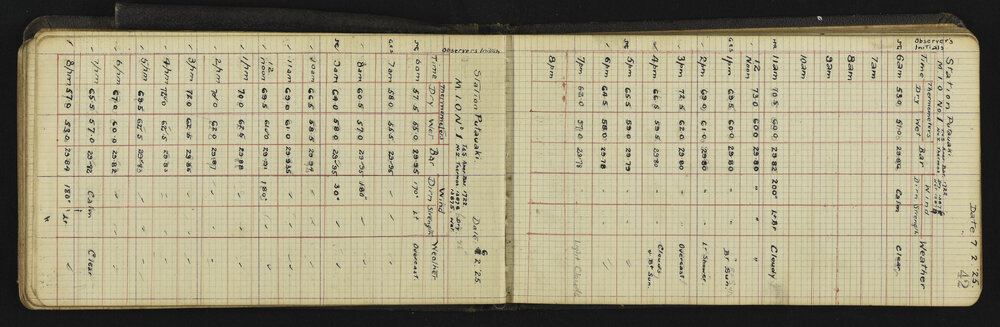 Station Putauaki Date 6.2.'25.
M I O N° 1
Observers Initials Time Thermometers Dry Wet Bar Wind Dirn Strength Weather
6am 57.5 55.0 29.95 170° Lt Overcast
7am 58.0 55.5 29.95
8am 60.5 57.0 29.95 180°
9am 64.0 58.0 29.95 30°
10am 66.5 58.5 29.94
11am 69.0 61.0 29.935
12 noon 69.5 61.0 29.90 180°
1pm 70.0 62.0 29.88
2pm 70.0 62.0 29.87
3pm 72.0 62.5 29.86
4pm 72.0 62.5 29.83
5pm 69.5
6pm 67.0 60.0 29.82
7pm 65.5 57.0 29.92 Calm Clear
8pm 57.0 53.0 180° Lt
42
Station Putauaki Date 7.2.'25.
M I O N° 1
Observers Initials Time Thermometers Dry Wet Bar Wind Dirn Strength Weather
6am 53.0 51.0 29.84 Calm Clear
7am
8am
9am
10am
11am 70.5 60.0 29.82 200° Lt Br Cloudy
12 Noon 73.0 60.0 29.80 "
1pm 68.5 60.0 29.80 " " Br Sun.
2pm 69.0 61.0 29.80 " Lt Shower
3pm 72.5 62.0 29.80 " Overcast
4pm 66.5 59.5 29.80 " Clouds & Br Sun.
5pm 65.5 59.0 29.79
6pm 64.5 58.0 29.78
7pm 62.0 57.0 29.78 Light Clouds
8pm